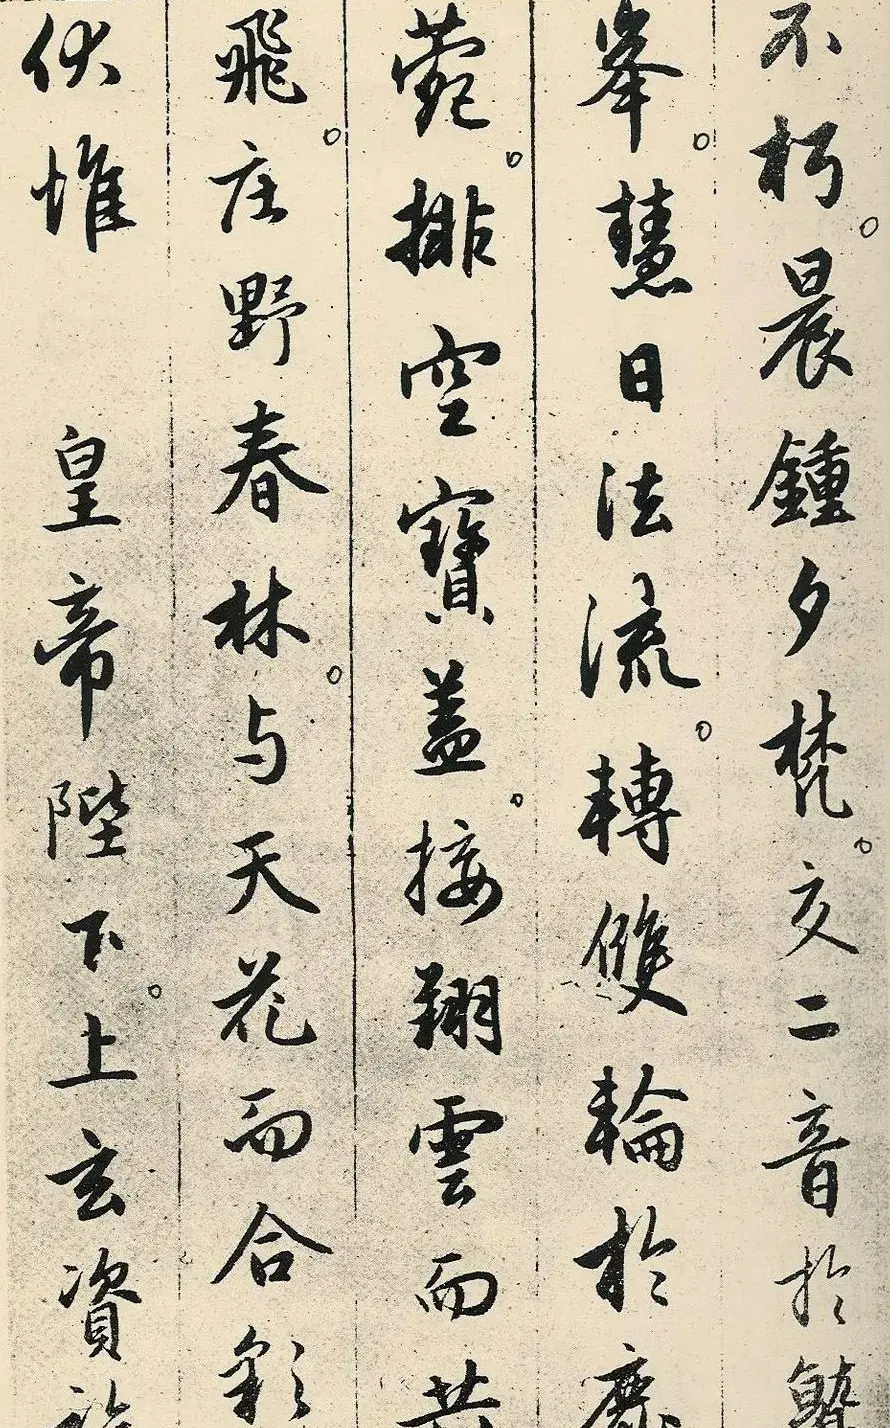 不朽。晨鍾夕梵。交二音於鷲
峯。慧日法流。轉雙輪於鹿
菀。排空寶盖。接翔雲而共
飛。庄野春林。与天花而合彩
伏惟 皇帝陛下。上玄資